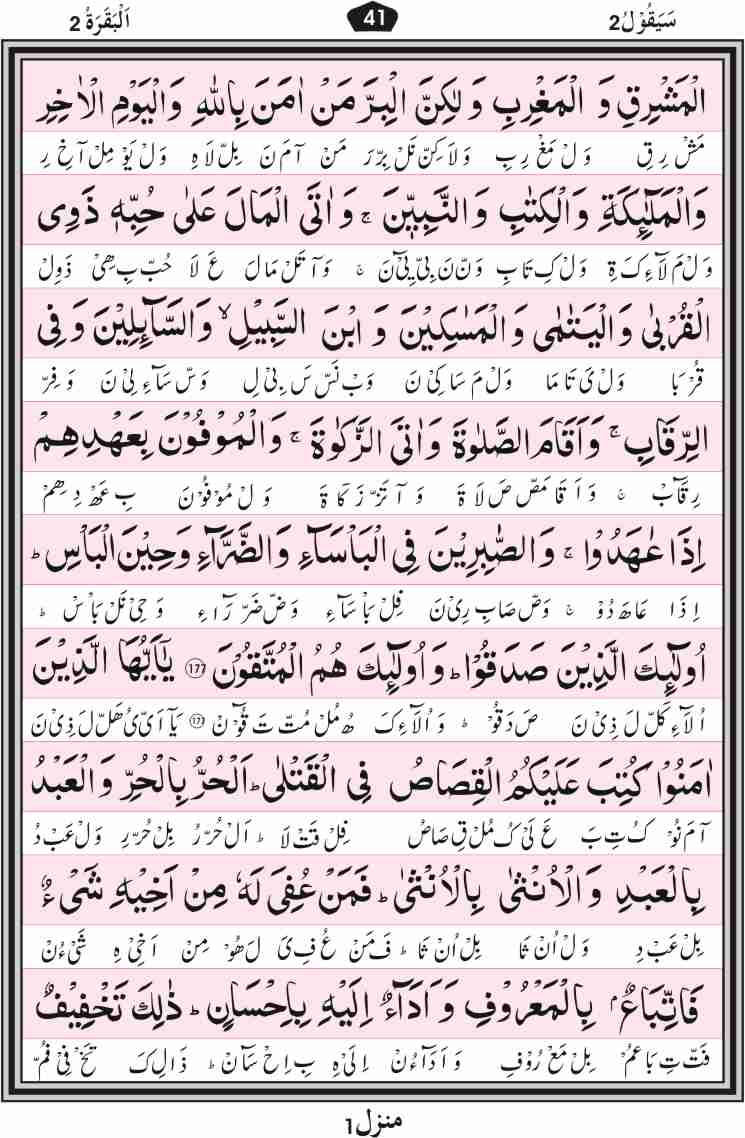 سَيَقُوْلُ 2 41 اَلْبَقَرَةُ 2
الْمَشْرِقِ وَ الْمَغْرِبِ وَلٰكِنَّ الْبِرَّ مَنْ اٰمَنَ بِاللّٰهِ وَالْيَوْمِ الْاٰخِرِ
مَشْ رِقِ وَ لْ مَغْ رِبِ وَ لَا كِنّ نَلْ بِرّ رَ مَنْ آ مَ نَ بِلّ لَا هِ وَ لْ يَوْ مِلْ آ خِ رِ
وَالْمَلٰٓئِكَةِ وَالْكِتٰبِ وَالنَّبِيّٖنَ ۚ وَاٰتَى الْمَالَ عَلٰى حُبِّهٖ ذَوِى
وَ لْ مَ لَآ ءِ كَ ةِ وَ لْ كِ تَا بِ وَ نّ نَ بِىّ يِىْٓ نَ ۚ وَ آ تَلْ مَا لَ عَ لَا حُبّ بِ هِىْ ذَ وِلْ
الْقُرْبٰى وَالْيَتٰمٰى وَالْمَسٰكِيْنَ وَ ابْنَ السَّبِيْلِ ۙ وَالسَّآئِلِيْنَ وَ فِى
قُرْ بَا وَ لْ ىَ تَا مَا وَ لْ مَ سَا كِىْ نَ وَ بْ نَسّ سَ بِىْ لِ وَ سّ سَآ ءِ لِىْ نَ وَ فِرّ
الرِّقَابِ ۚ وَاَقَامَ الصَّلٰوةَ وَاٰتَى الزَّكٰوةَ ۚ وَالْمُوْفُوْنَ بِعَهْدِهِمْ
رِ قَآبْ ۚ وَ اَ قَا مَصّ صَ لَا ةَ وَ آ تَزّ زَ كَا ةَ وَ لْ مُوْ فُوْ نَ بِ عَهْ دِ هِمْ
اِذَا عٰهَدُوْا ۚ وَالصّٰبِرِيْنَ فِى الْبَاْسَآءِ وَالضَّرَّآءِ وَحِيْنَ الْبَاْسِ ؕ
اِ ذَا عَا هَ دُوْ ۚ وَ صّ صَا بِ رِىْ نَ فِلْ بَاْ سَآ ءِ وَ ضّ ضَرّ رَآ ءِ وَ حِىْ نَلْ بَاْسْ ؕ
اُولٰٓئِكَ الَّذِيْنَ صَدَقُوْا ؕ وَاُولٰٓئِكَ هُمُ الْمُتَّقُوْنَ ۱۷۷ يٰٓاَيُّهَا الَّذِيْنَ
اُ لَآ ءِ كَلّ لَ ذِىْ نَ صَ دَ قُوْ ؕ وَ اُ لَآ ءِ كَ هُ مُلْ مُتّ تَ قُوْٓنْ ۱۷۷ يَآ اَىّ ىُ هَلّ لَ ذِىْ نَ
اٰمَنُوْا كُتِبَ عَلَيْكُمُ الْقِصَاصُ فِى الْقَتْلٰى ؕ اَلْحُرُّ بِالْحُرِّ وَالْعَبْدُ
آ مَ نُوْ كُ تِ بَ عَ لَىْ كُ مُلْ قِ صَا صُ فِلْ قَتْ لَا ؕ اَلْ حُرّ رُ بِلْ حُرّ رِ وَ لْ عَبْ دُ
بِالْعَبْدِ وَالْاُنْثٰى بِالْاُنْثٰى ؕ فَمَنْ عُفِىَ لَهٗ مِنْ اَخِيْهِ شَىْءٌ
بِلْ عَبْ دِ وَ لْ اُنْ ثَا بِلْ اُنْ ثَا ؕ فَ مَنْ عُ فِ ىَ لَ هُوْ مِنْ اَ خِىْ هِ شَىْ ءُنْ
فَاتِّبَاعٌۢ بِالْمَعْرُوْفِ وَ اَدَآءٌ اِلَيْهِ بِاِحْسَانٍ ؕ ذٰلِكَ تَخْفِيْفٌ
فَتّ تِ بَا عُمْ بِلْ مَعْ رُوْفِ وَ اَ دَآ ءُنْ اِ لَىْ هِ بِ اِحْ سَآنْ ؕ ذَا لِ كَ تَخْ فِىْ فُمّ
منزل 1